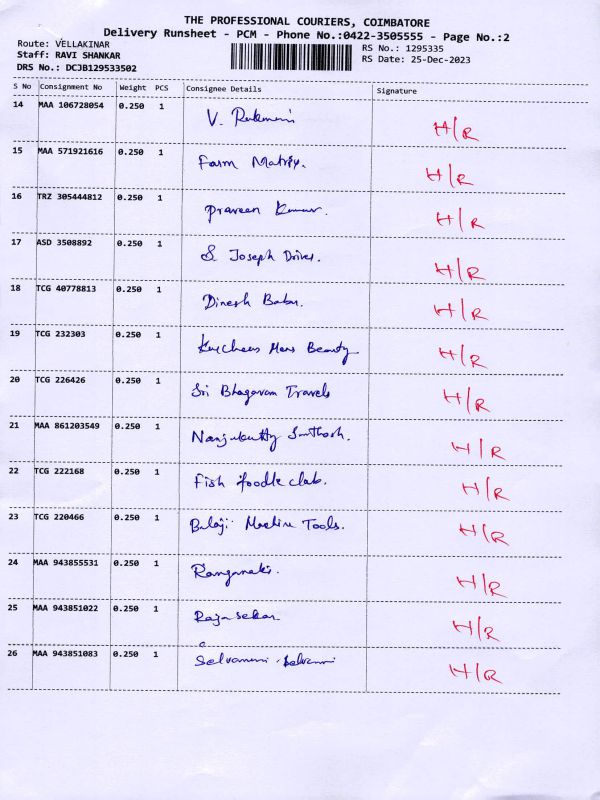 THE PROFESSIONAL COURIERS, COIMBATORE
Delivery Runsheet - PCM - Phone No.:0422-3505555 - Page No.:2
Route: VELLAKINAR RS No.: 1295335
Staff: RAVI SHANKAR RS Date: 25-Dec-2023
DRS No.: DCJB129533502
S No Consignment No Weight PCS Consignee Details Signature
14 MAA 106728054 0.250 1 V. H/R
15 MAA 571921616 0.250 1 Farm Matrix. H/R
16 TRZ 305444812 0.250 1 Praveen Kumar. H/R
17 ASD 3508892 0.250 1 S. Joseph Driver. H/R
18 TCG 40778813 0.250 1 Dinesh Babu. H/R
19 TCG 232303 0.250 1 Mens Beauty H/R
20 TCG 226426 0.250 1 Sri Bhagavan Travels H/R
21 MAA 861203549 0.250 1 Santhosh. H/R
22 TCG 222168 0.250 1 Fish foodle club. H/R
23 TCG 220466 0.250 1 Balaji Machine Tools. H/R
24 MAA 943855531 0.250 1 H/R
25 MAA 943851022 0.250 1 Rajasekar H/R
26 MAA 943851083 0.250 1 H/R